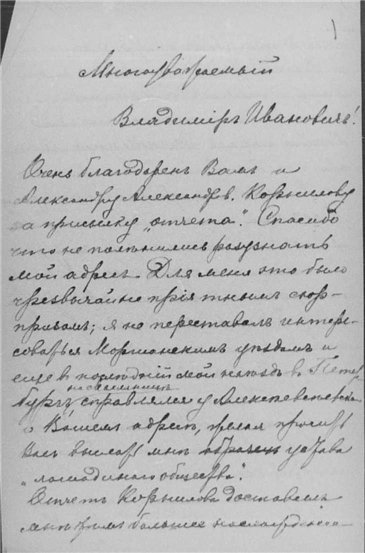 Многоуважаемый
Владиміръ Ивановичъ!
Очень благодаренъ Вамъ и
Александру Александров. Корнилову
за присылку „отчета“. Спасибо
что не полѣнились разузнать
мой адресъ. Для меня это было
чрезвычайно пріятнымъ сюр-
призомъ; я не переставалъ интере-
соваться Моршанскимъ уѣздомъ и
еще въ послѣдній мой пріѣздъ въ Петер
на масляницѣ
бургъ справлялся у
о Вашемъ адресѣ, желая просить
Васъ выслать мнѣ образецъ устава
„лошадинаго общества“.
Отчетъ Корнилова доставилъ
мнѣ большое наслажденіе